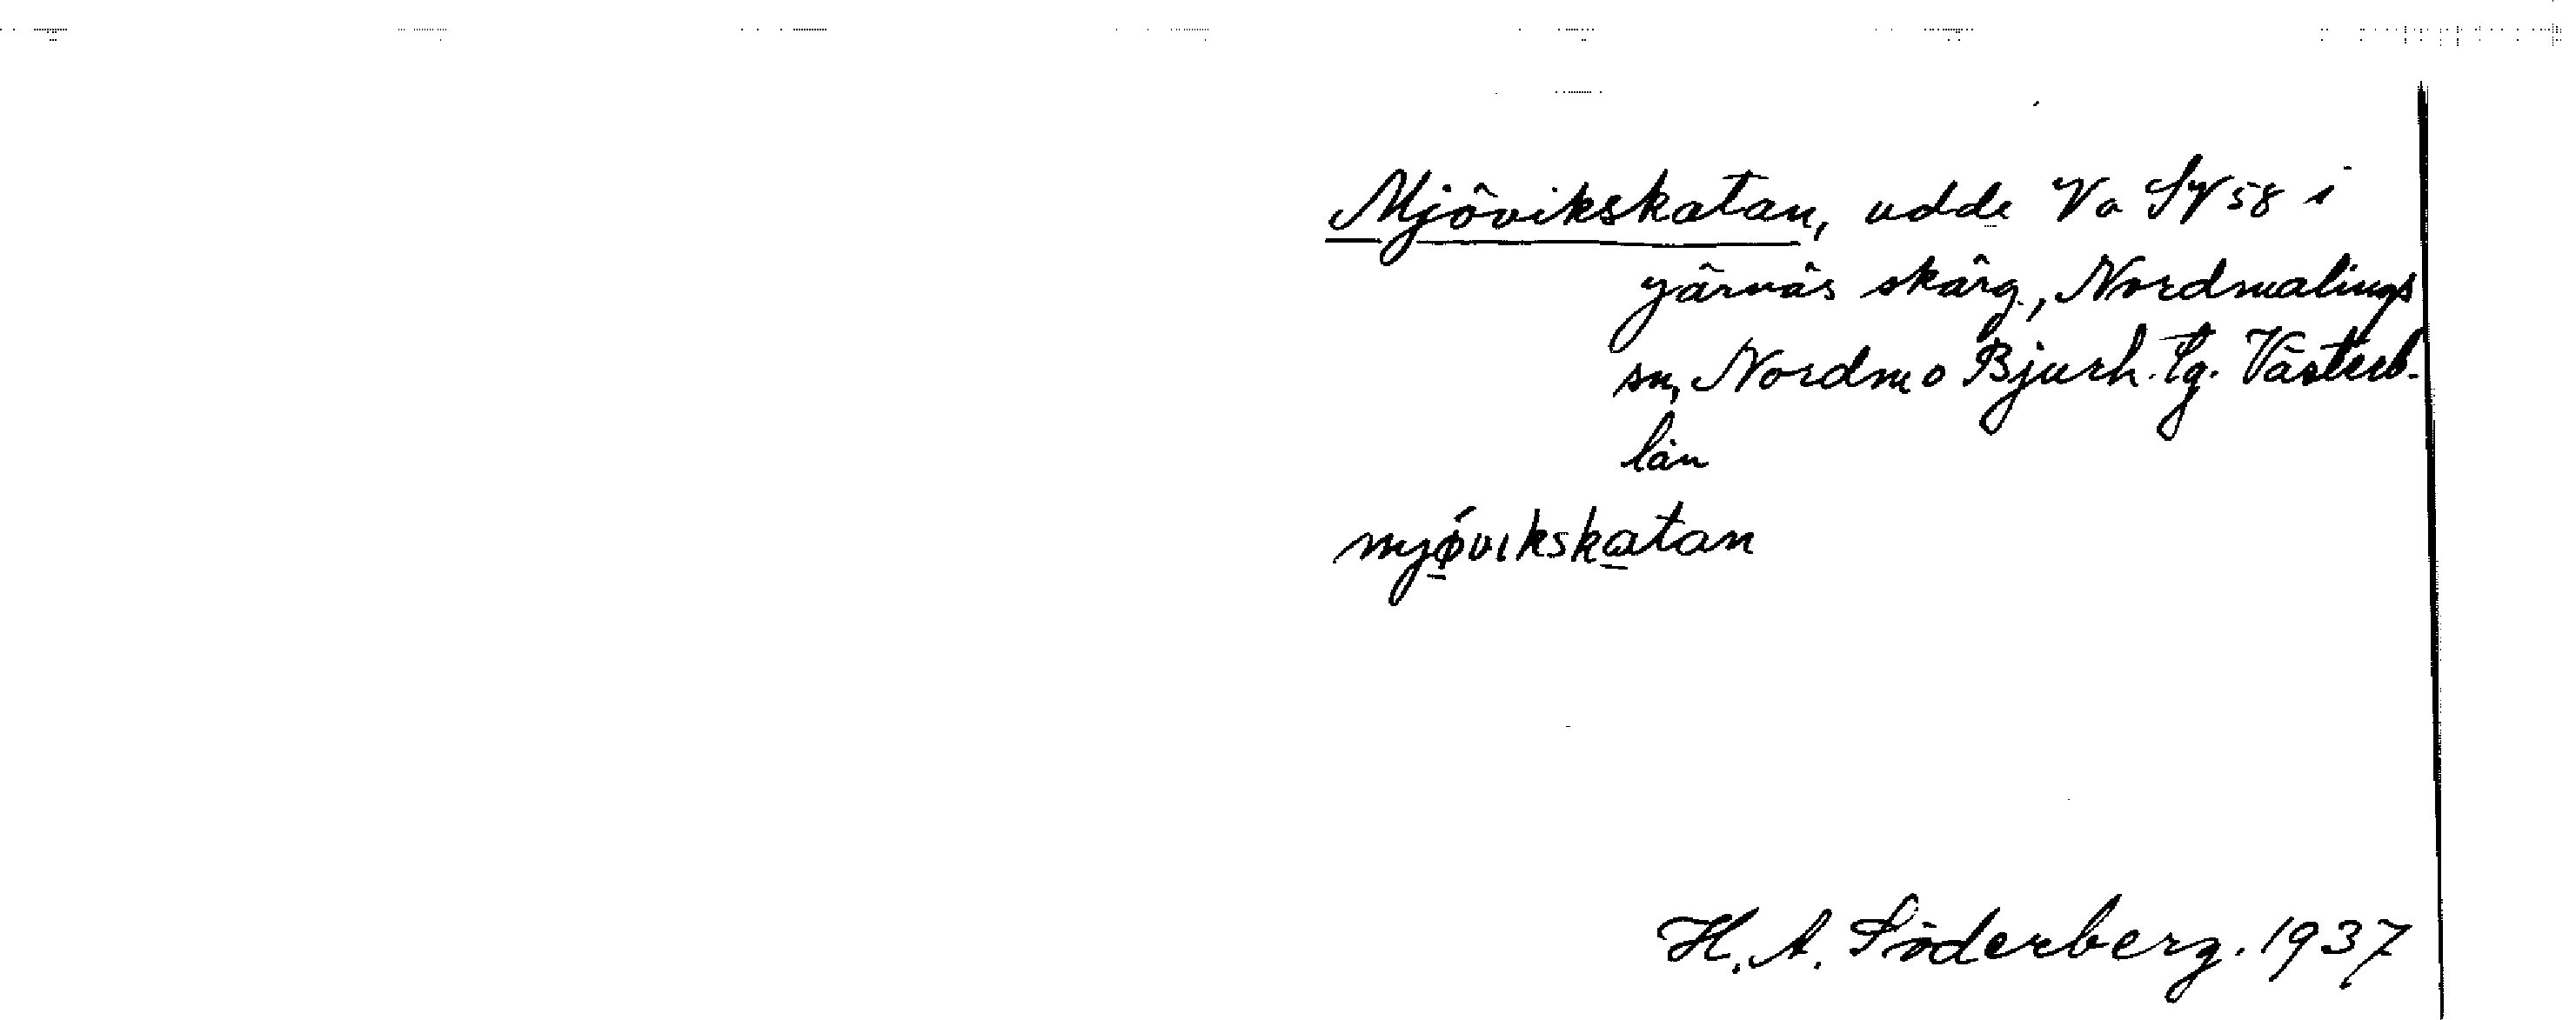 Mjövikskatan, udde Va SV 58 i
järnäs skärg., Nordmalings
sn, Nordm o Bjurh. tg. Västerb.
län
mjǿvikskatan
H. A. Söderberg. 1937